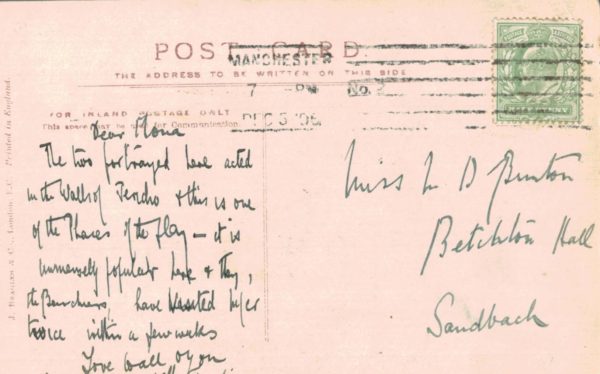 POST CARD
THE ADDRESS TO BE WRITTEN ON THIS SIDE
MANCHESTER
7 - PM No. 2
DEC 3 '06
FOR INLAND POSTAGE ONLY
This space may be used for Communication
J. BEAGLES & Co., London, E.C. Printed in England.
Dear Mona
The two portrayed have acted
in the Walls of Jericho & this is one
of the Phases of the play — it is
immensely popular here & they,
the Bourchiers, have visited
twice within a few weeks
Love to all of you
Miss M D Bunton
Betchton Hall
Sandbach